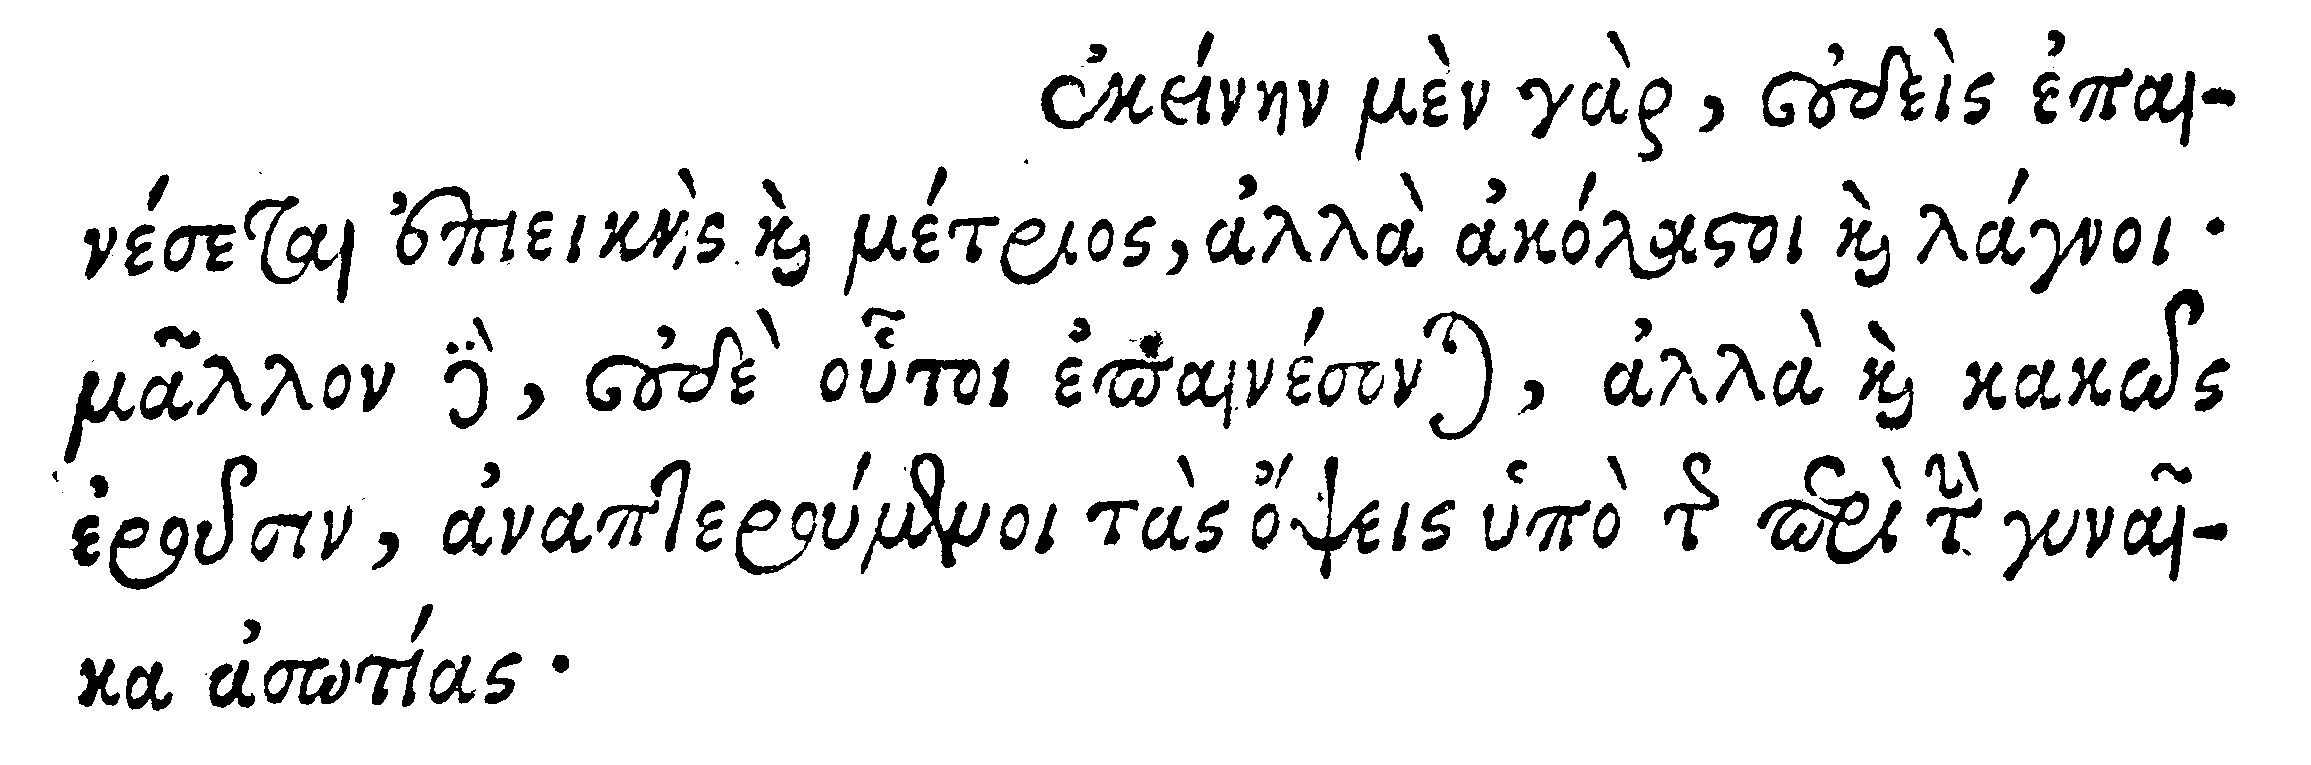 ἐκείνην μὲν γὰρ, οὐδεὶς ἐπαι-
νέσεται ἐπιεικὴς καὶ μέτριος, ἀλλὰ ἀκόλαστοι καὶ λάγνοι·
μᾶλλον δὲ, οὐδὲ οὗτοι ἐπαινέσονται, ἀλλὰ καὶ κακῶς
ἐροῦσιν, ἀναπτερούμενοι τὰς ὄψεις ὑπὸ τῆς περὶ τὴν γυναῖ-
κα ἀσωτίας·